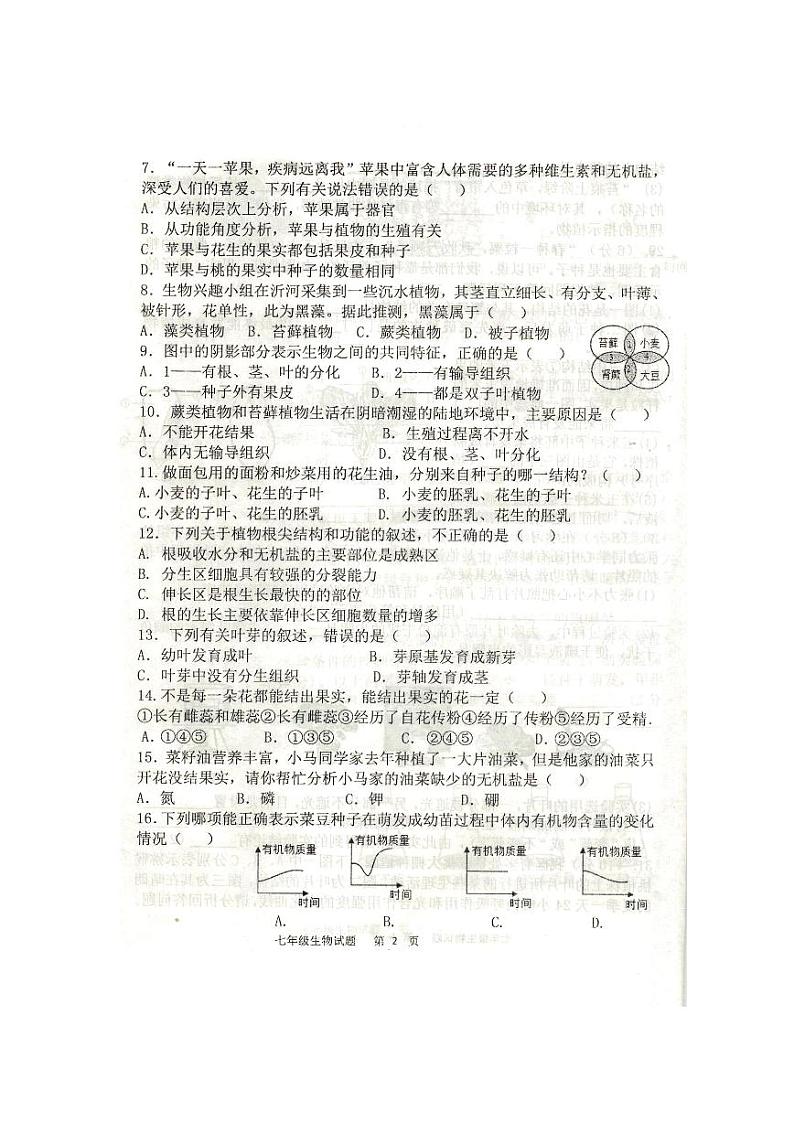 7．“一天一苹果，疾病远离我”苹果中富含人体需要的多种维生素和无机盐，
深受人们的喜爱。下列有关说法错误的是（　　）
A．从结构层次上分析，苹果属于器官
B．从功能角度分析，苹果与植物的生殖有关
C．苹果与花生的果实都包括果皮和种子
D．苹果与桃的果实中种子的数量相同
8．生物兴趣小组在沂河采集到一些沉水植物，其茎直立细长、有分支、叶薄、
被针形，花单性，此为黑藻。据此推测，黑藻属于（　　）
A．藻类植物　B．苔藓植物　C．蕨类植物　D．被子植物
9．图中的阴影部分表示生物之间的共同特征，正确的是（　　）
A．1——有根、茎、叶的分化　B．2——有输导组织
C．3——种子外有果皮　D．4——都是双子叶植物
苔藓　1　小麦
3　4
肾蕨　2　大豆
10．蕨类植物和苔藓植物生活在阴暗潮湿的陆地环境中，主要原因是（　　）
A．不能开花结果　B．生殖过程离不开水
C．体内无输导组织　D．没有根、茎、叶分化
11．做面包用的面粉和炒菜用的花生油，分别来自种子的哪一结构？（　　）
A.小麦的子叶、花生的子叶　B．小麦的胚乳、花生的子叶
C.小麦的子叶、花生的胚乳　D．小麦的胚乳、花生的胚乳
12．下列关于植物根尖结构和功能的叙述，不正确的是（　　）
A．根吸收水分和无机盐的主要部位是成熟区
B．分生区细胞具有较强的分裂能力
C．伸长区是根生长最快的的部位
D．根的生长主要依靠伸长区细胞数量的增多
13．下列有关叶芽的叙述，错误的是（　　）
A．幼叶发育成叶　B．芽原基发育成新芽
C．叶芽中没有分生组织　D．芽轴发育成茎
14.不是每一朵花都能结出果实，能结出果实的花一定（　　）
①长有雌蕊和雄蕊②长有雌蕊③经历了自花传粉④经历了传粉⑤经历了受精.
A.①④⑤　B．①③⑤　C．②④⑤　D.②③⑤
15．菜籽油营养丰富，小马同学家去年种植了一大片油菜，但是他家的油菜只
开花没结果实，请你帮忙分析小马家的油菜缺少的无机盐是（　　）
A．氮　B．磷　C．钾　D．硼
16．下列哪项能正确表示菜豆种子在萌发成幼苗过程中体内有机物含量的变化
情况（　　）
有机物质量　有机物质量　有机物质量　有机物质量
时间　时间　时间　时间
A.　B.　C.　D.
七年级生物试题　第 2 页